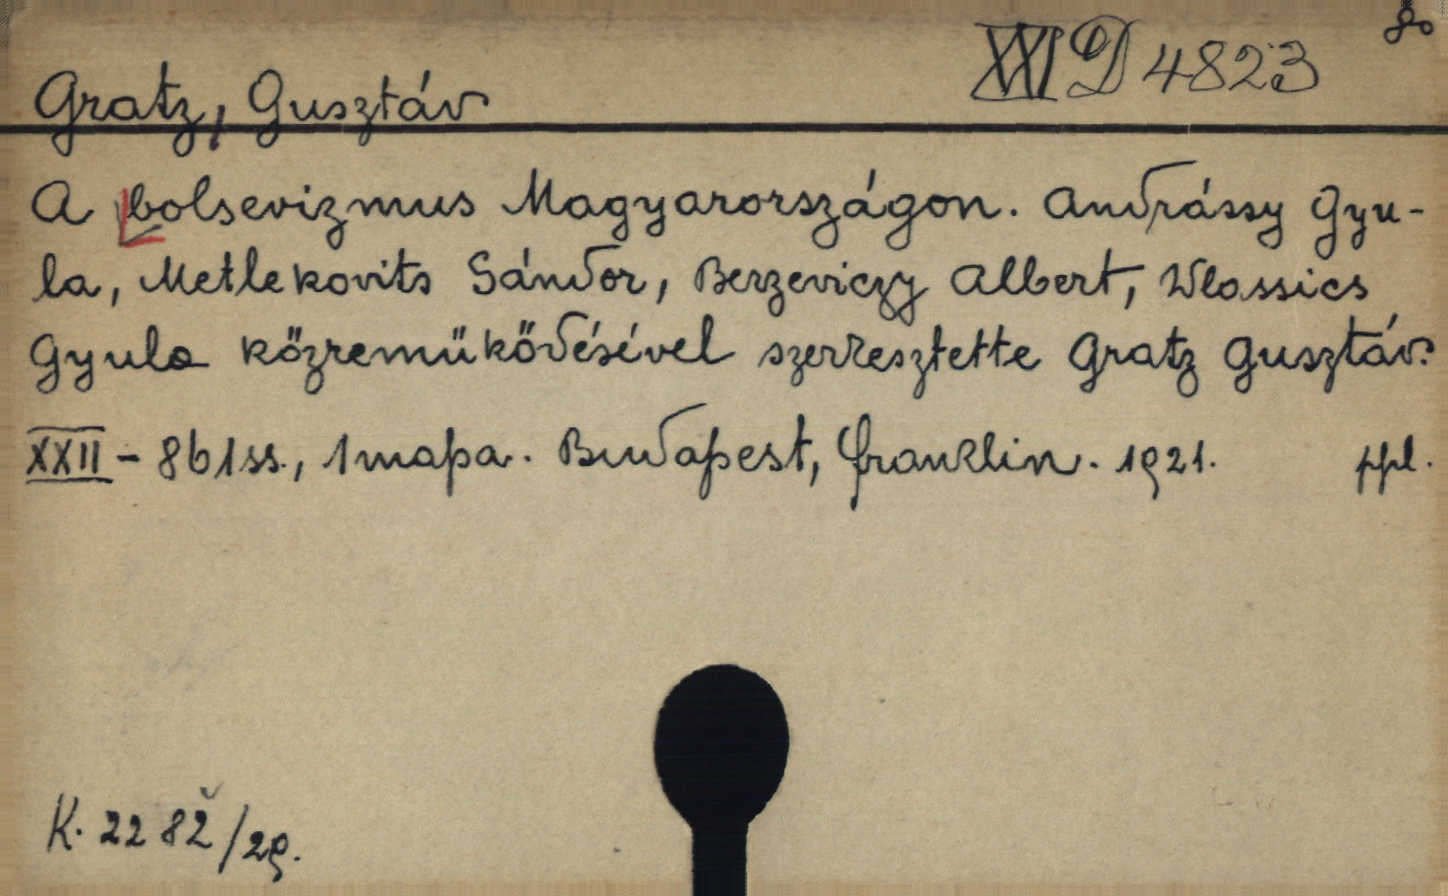 8°
XXI D 4823
Gratz, Gusztáv
A bolsevizmus Magyarországon. Andrássy Gyu-
la, Metlekovits Sándor, Berzeviczy Albert, Wlassics
Gyula közremüködésével szerkesztette Gratz Gusztáv.
XXII - 861ss., 1 mapa. Budapest, Franklin. 1921. ppl.
K. 2282/29.